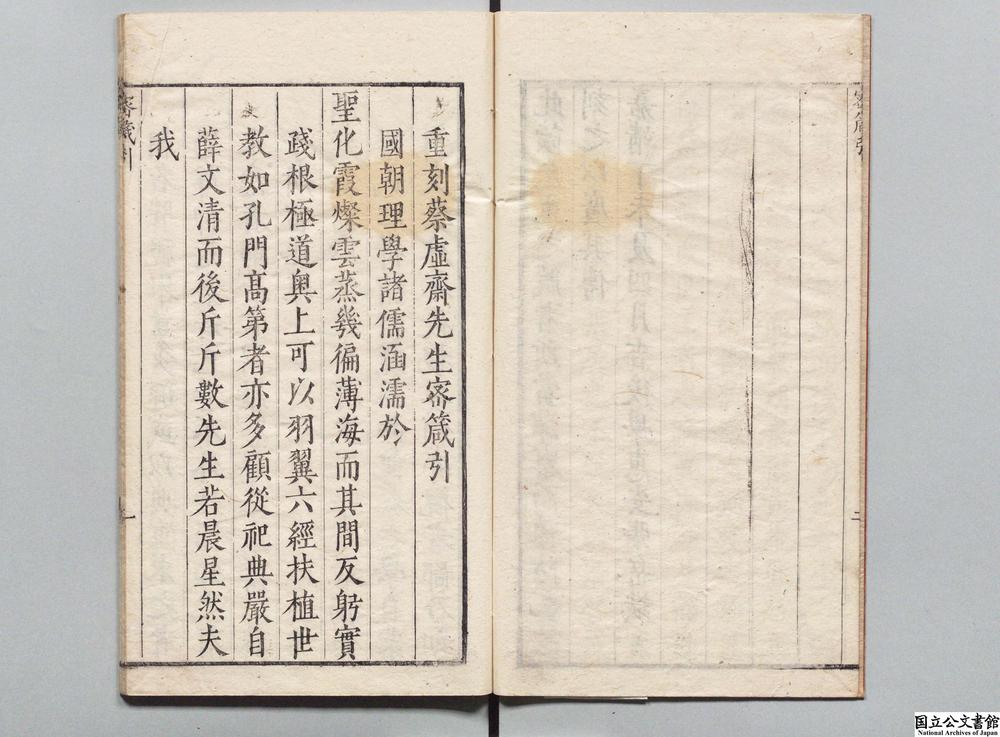 重刻蔡虛齋先生宻箴引
國朝理學諸儒涵濡於
聖化霞燦雲蒸幾徧薄海而其間反躬實
踐根極道奧上可以羽翼六經扶植世
教如孔門高第者亦多顧從祀典嚴自
薛文清而後斤斤數先生若晨星然夫
我
宻箴引
一
国立公文書館
National Archives of Japan